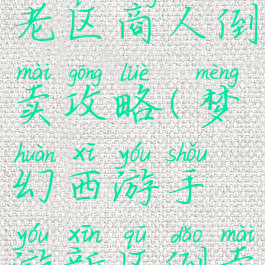 老区商人倒
mài gōng lüè mèng
卖攻略(梦
huàn xī yóu shǒu
幻西游手
yóu xīn qū dǎo mài
游新区倒卖